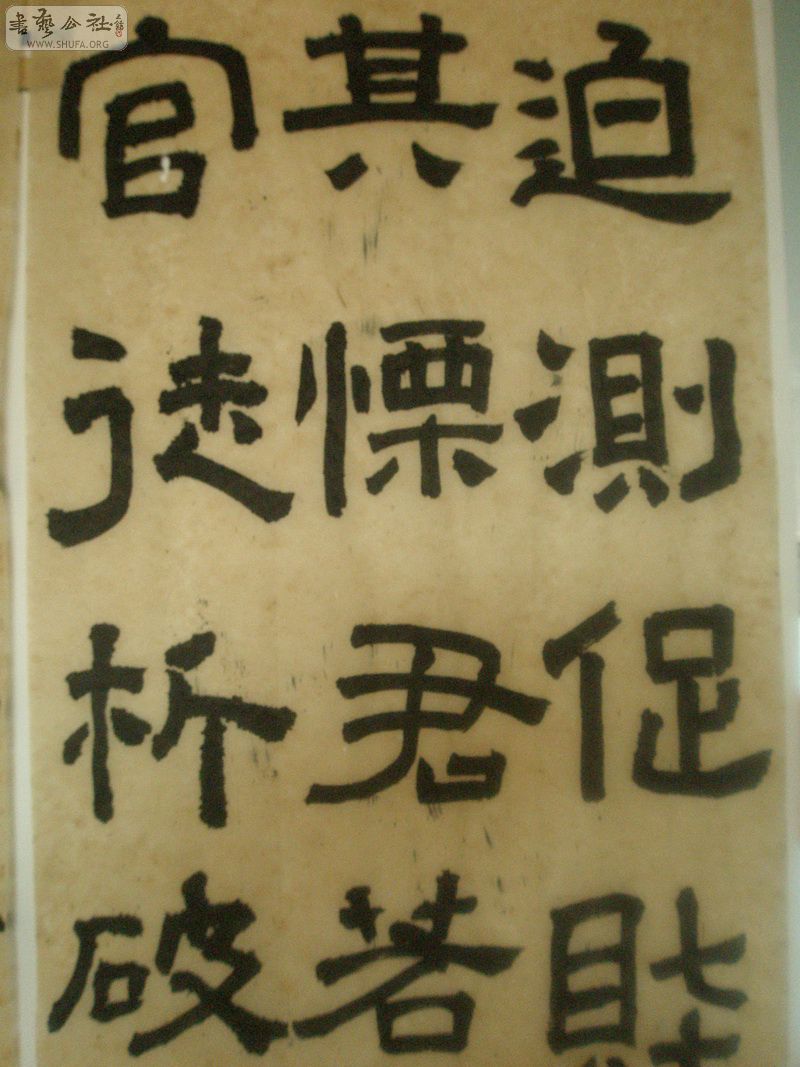 迫測促
其慄君若
官徒析破
書藝公社
WWW.SHUFA.ORG